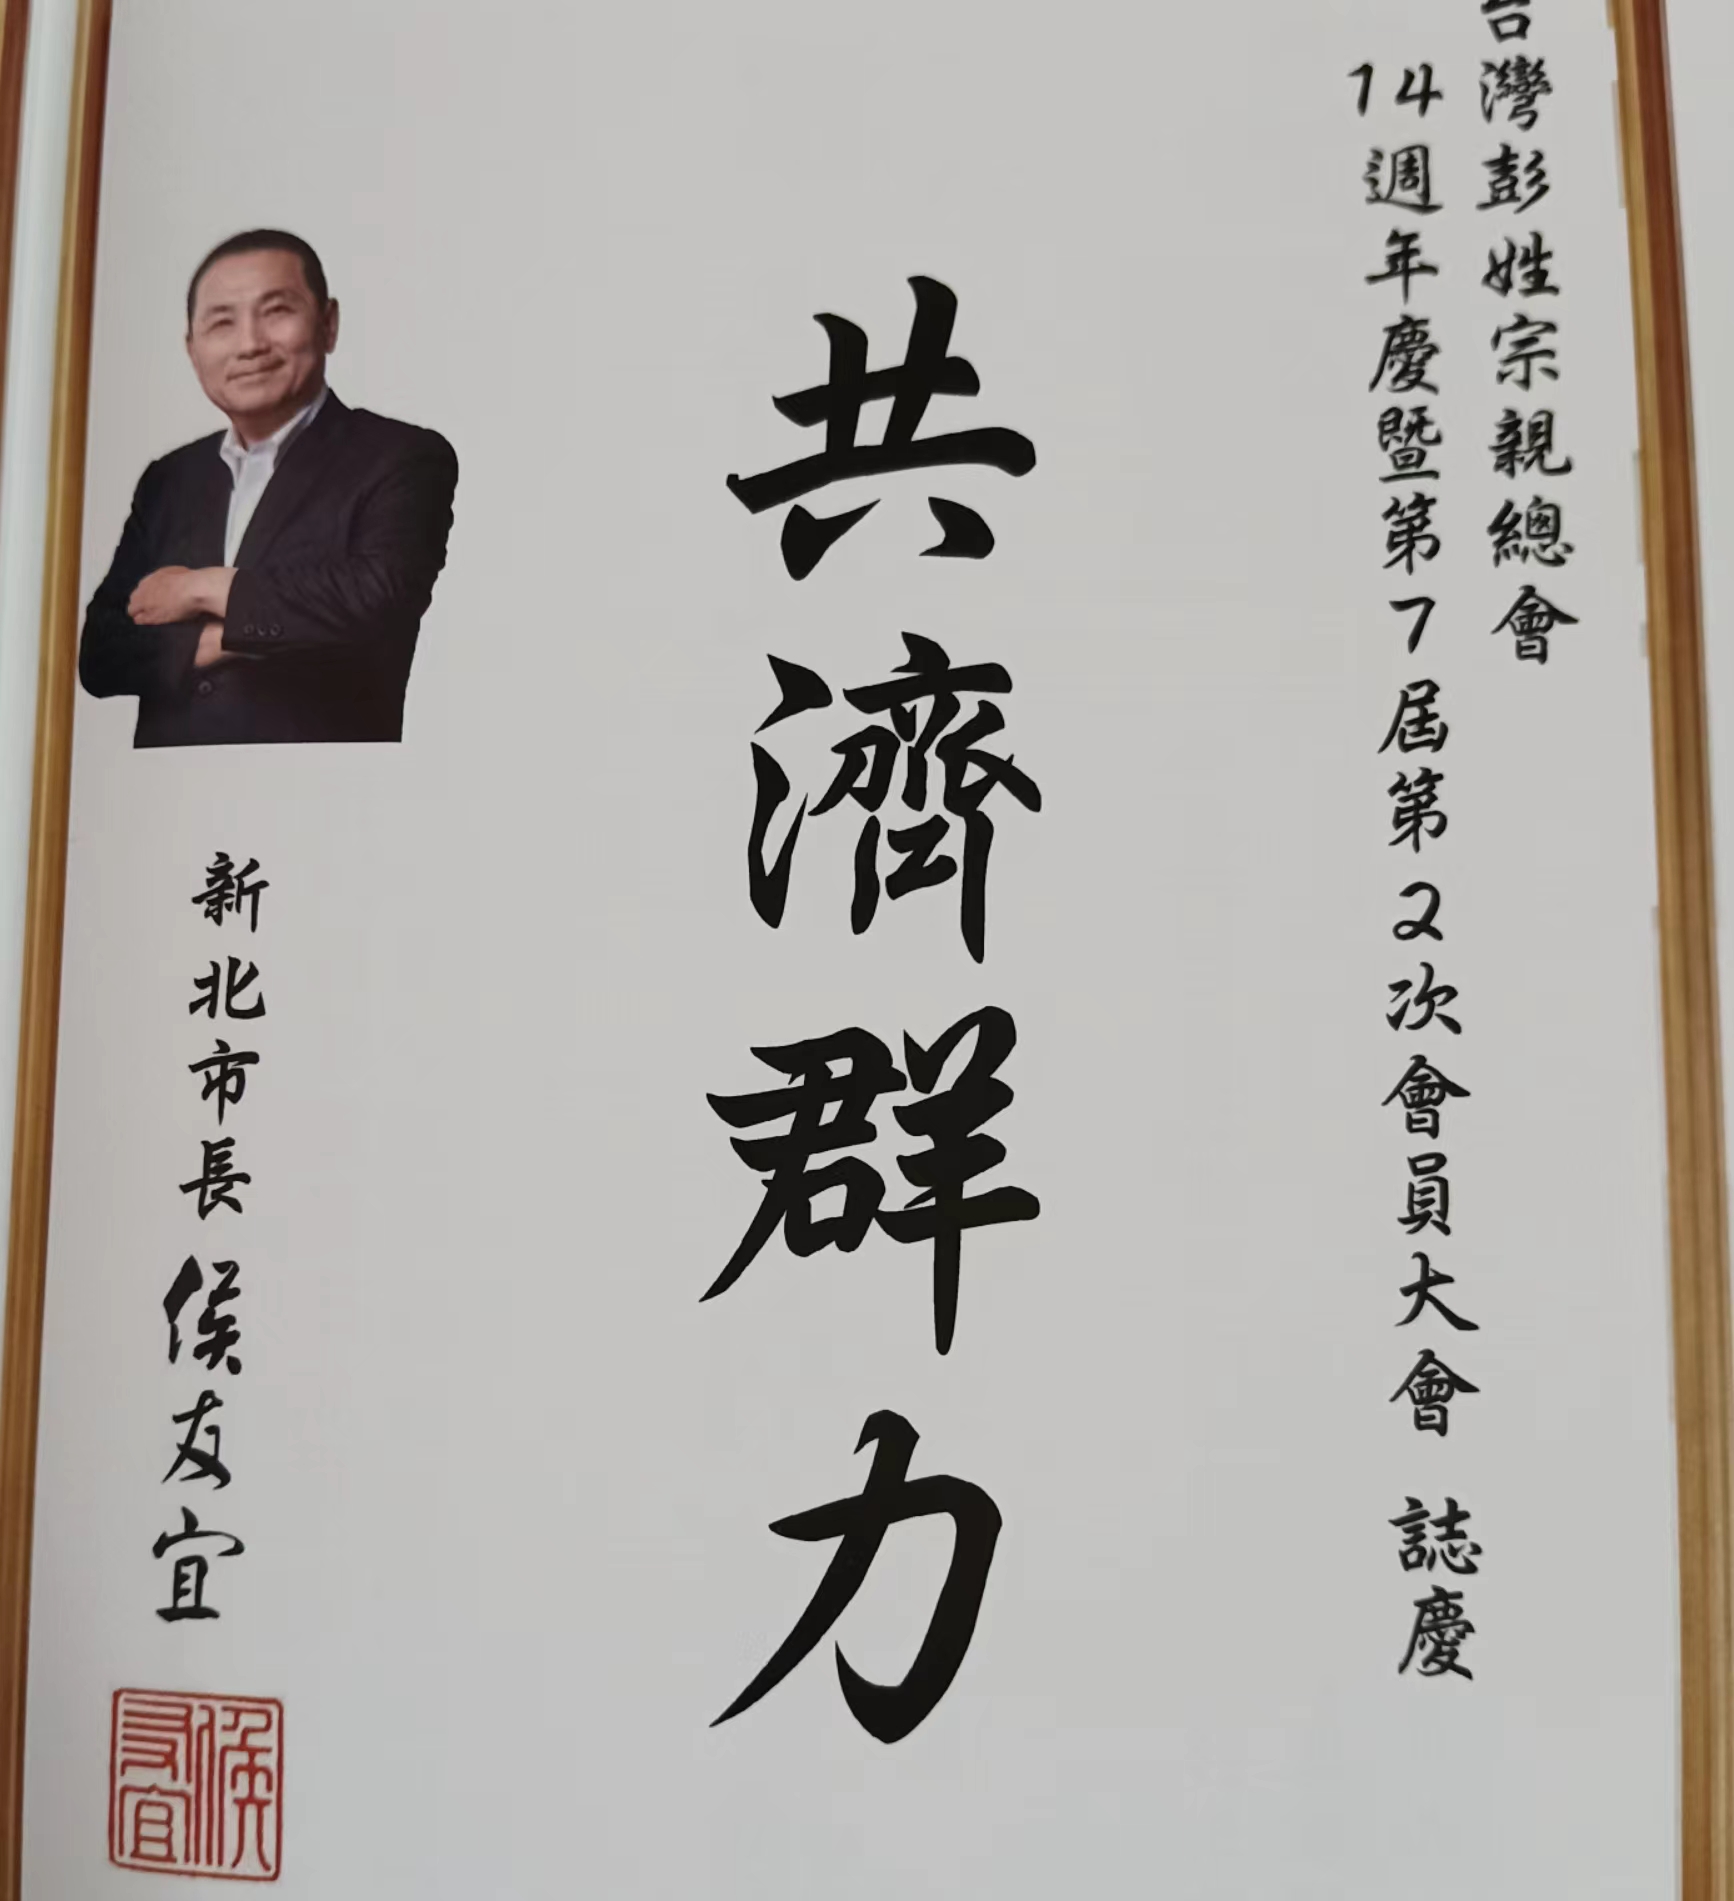 台灣彭姓宗親總會
14週年慶暨第7屆第2次會員大會 誌慶
共濟群力
新北市長 侯友宜
侯友宜